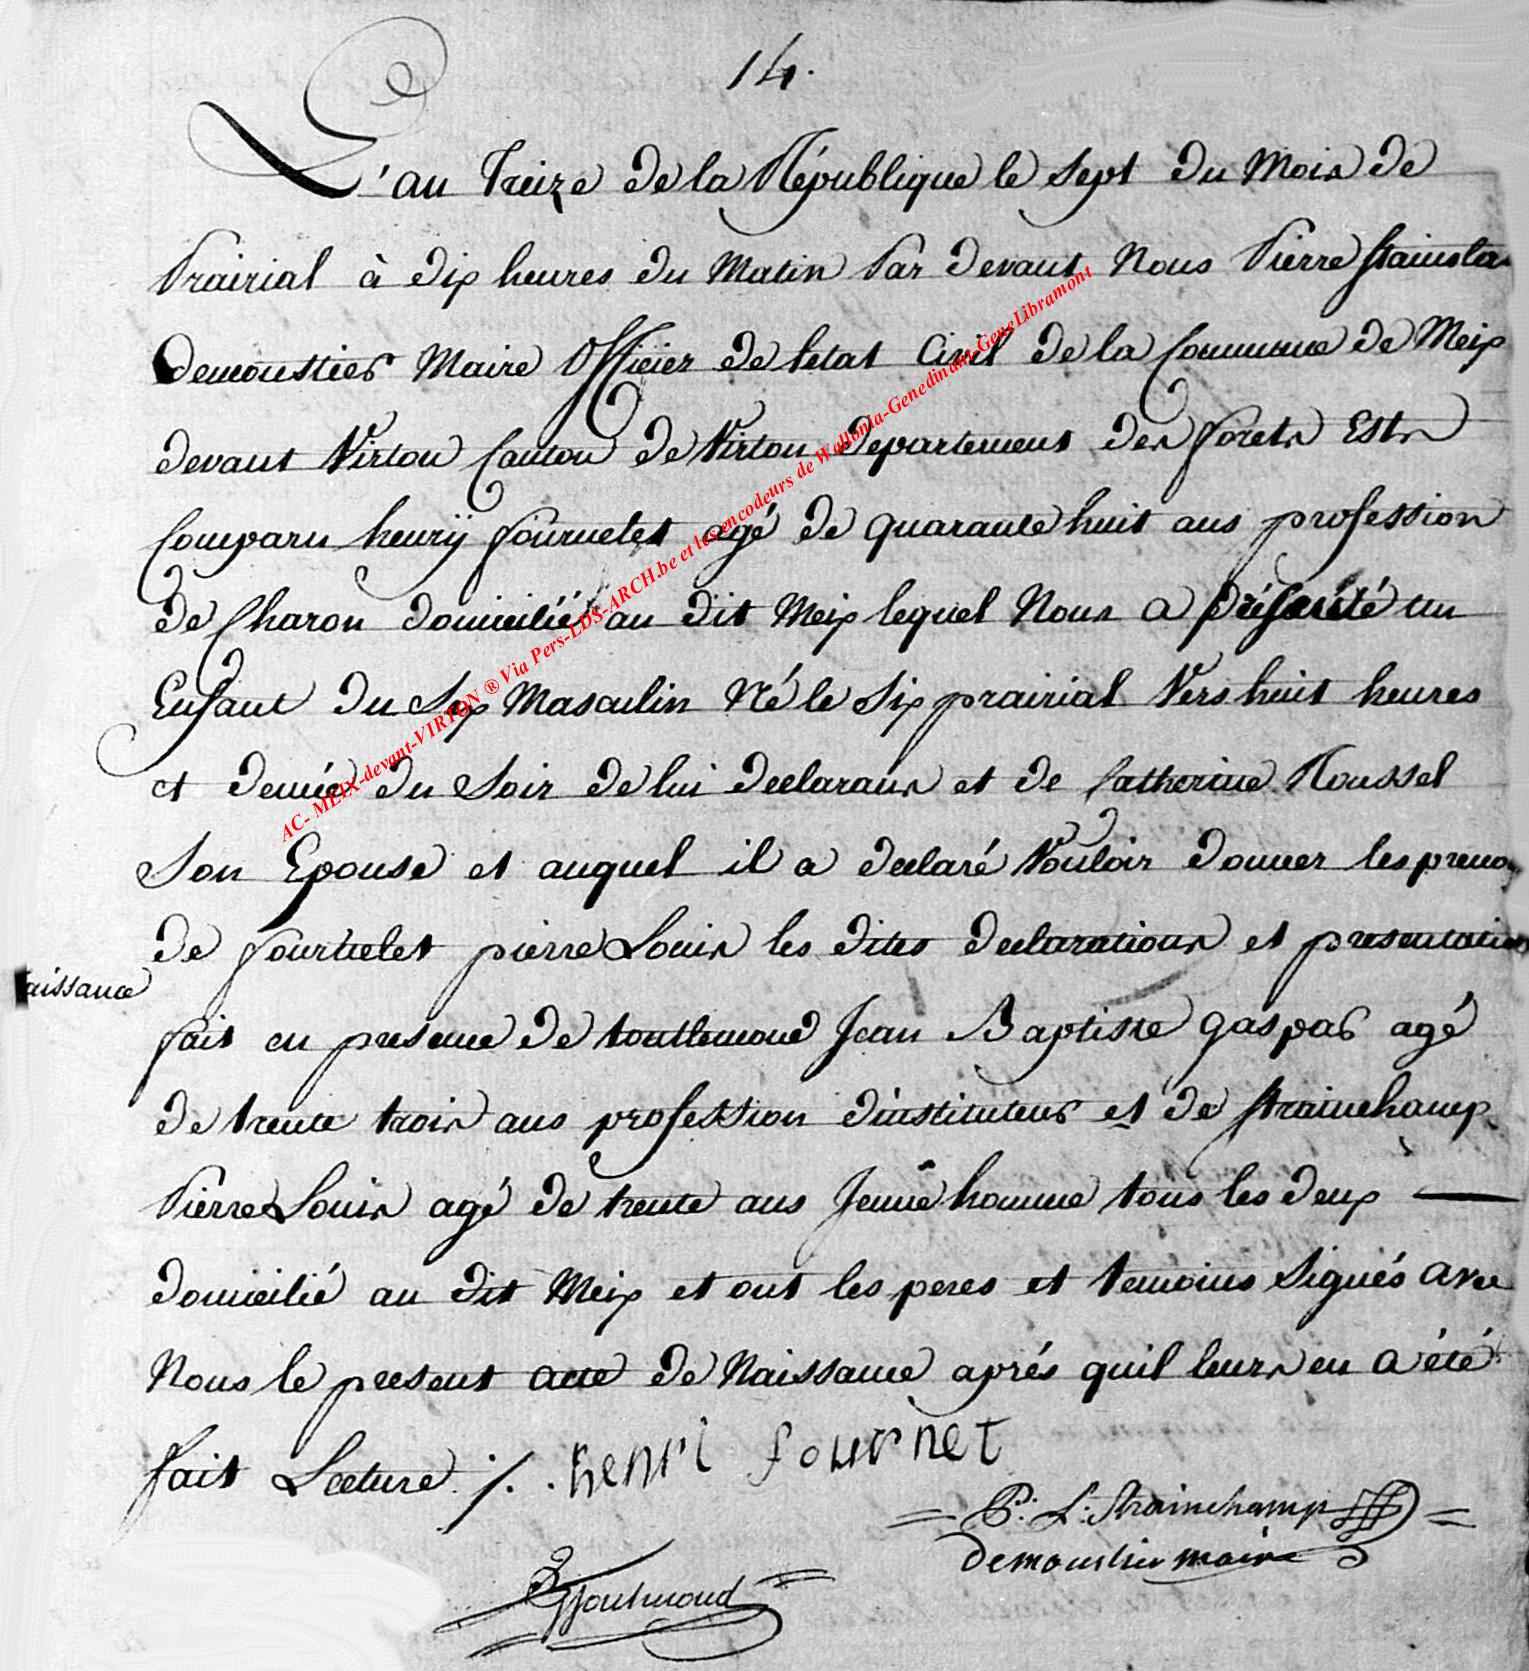 14.
L'an Treize de la République le sept du Mois de
Prairial à dix heures du Matin Par devant Nous Pierre Stainslas
demoustier Maire Officier de letat Civil de la Commune de Meix
devant Virton Canton de Virton departement des forets Est
Comparu henrÿ fournelet agé de quarante huit ans profession
de Charon domicilié au dit Meix lequel Nous a présenté un
Enfant du Sex Masculin Né le Six prairial Vers huit heures
et demie du Soir de lui declarans et de Catherine Roussel
Son Epouse et auquel il a declaré Vouloir donner les prenom
de fournelet pierre Louis les dites declarations et presentation
aissance
fait en presence de toutlemond Jean Baptiste gaspar agé
de trente trois ans profession dinstituteur et de Strainchamp
Pierre Louis agé de trente ans Jeune homme tous les deux
domicilié au dit Meix et ont les peres et temoins Signés avec
Nous le present acte de Naissance aprés quil leurs en a été
fait Lecture ./. henri fournet
P: L: Strainchamp
demoustier maire
Toutmond
AC- MEIX-devant-VIRTON ® Via Pers-LDS-ARCH.be et les encodeurs de Wallonia-Genedinant-GeneLibramont